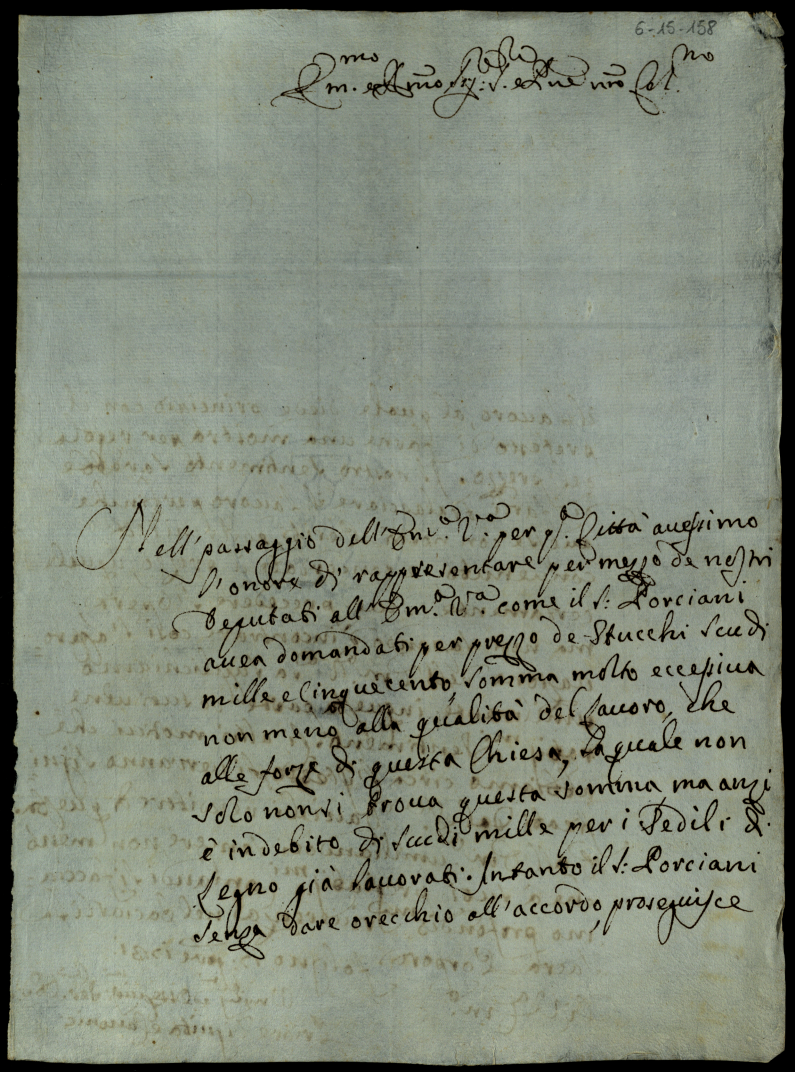 6-15-158
Em.mo e Rmo Sig:re S.re e Pne nro Col.mo
Nell' passaggio dell' Em.a V.a per q.a Città avessimo
l'onore di rappresentare per mezzo de nostri
Deputati all' Em.a V.a come il S: Porciani
avea domandati per prezzo de Stucchi scudi
mille e Cinquecento, somma molto eccessiva
non meno alla qualità del lavoro, che
alle forze di questa Chiesa, la quale non
solo non si trova questa somma, ma anzi
è in debito di scudi mille per i Sedili di
Legno già lavorati. Intanto il S: Porciani
senza dare orecchio all'accordo, proseguisce